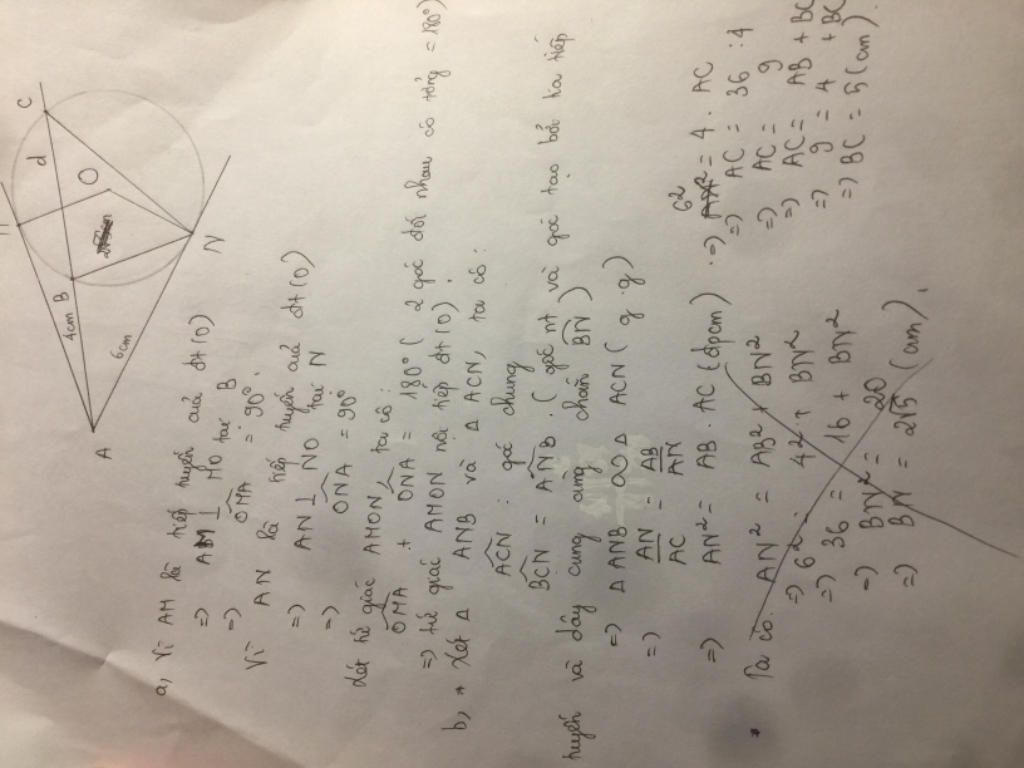 C
d
O
B
4cm
N
6cm
A
a, Vì AM là tiếp tuyến của đt (O)
=> AM ⊥ MO tại B
=> OMA = 90°.
Vì AN là tiếp tuyến của đt (O)
=> AN ⊥ NO tại N
=> ONA = 90°
Xét tứ giác AMON, ta có:
OMA + ONA = 180° ( 2 góc đối nhau có tổng = 180°)
=> tứ giác AMON nội tiếp đt (O).
b, * Xét Δ ANB và Δ ACN, ta có:
ACN : góc chung
BCN = ANB. ( góc nt và góc tạo bởi tia tiếp
tuyến và dây cung cùng chắn BN )
=> Δ ANB ∞ Δ ACN ( g . g )
=> AN/AC = AB/AN
=> AN² = AB . AC (đpcm)
* Ta có: AN² = AB² + BN²
=> 6² = 4² + BN²
=> 36 = 16 + BN²
=> BN² = 20
=> BN = 2√5 (cm).
=> 6² = 4 . AC
=> AC = 36 : 4
=> AC = 9
=> AC = AB + BC
=> 9 = 4 + BC
=> BC = 5 (cm).